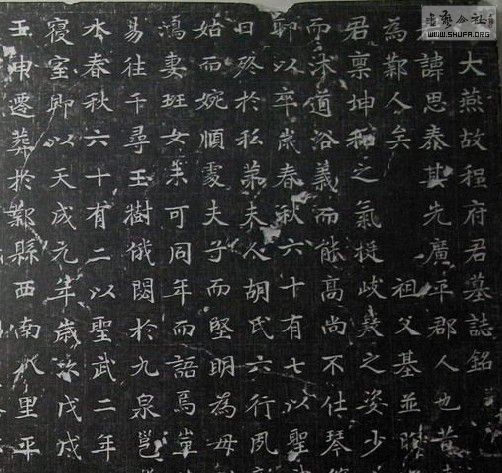 大燕故程府君墓誌銘
諱思泰其先廣平郡人也昔
為鄴人矣 祖父基並
君稟坤和之氣挺岐嶷之姿少
而沐道浴義而能高尚不仕琴
以卒歲春秋六十有七以聖
日歿於私苐夫人胡氏六行夙
姑而婉順處夫子而堅明為母
鴻妻班女業可同年而語焉豈
易往千尋玉樹俄閟於九泉邕
水春秋六十有二以聖武二年
寢室即以天成元年歲次戊戌
壬申遷葬於鄴縣西南八里平
書藝公社
WWW.SHUFA.ORG